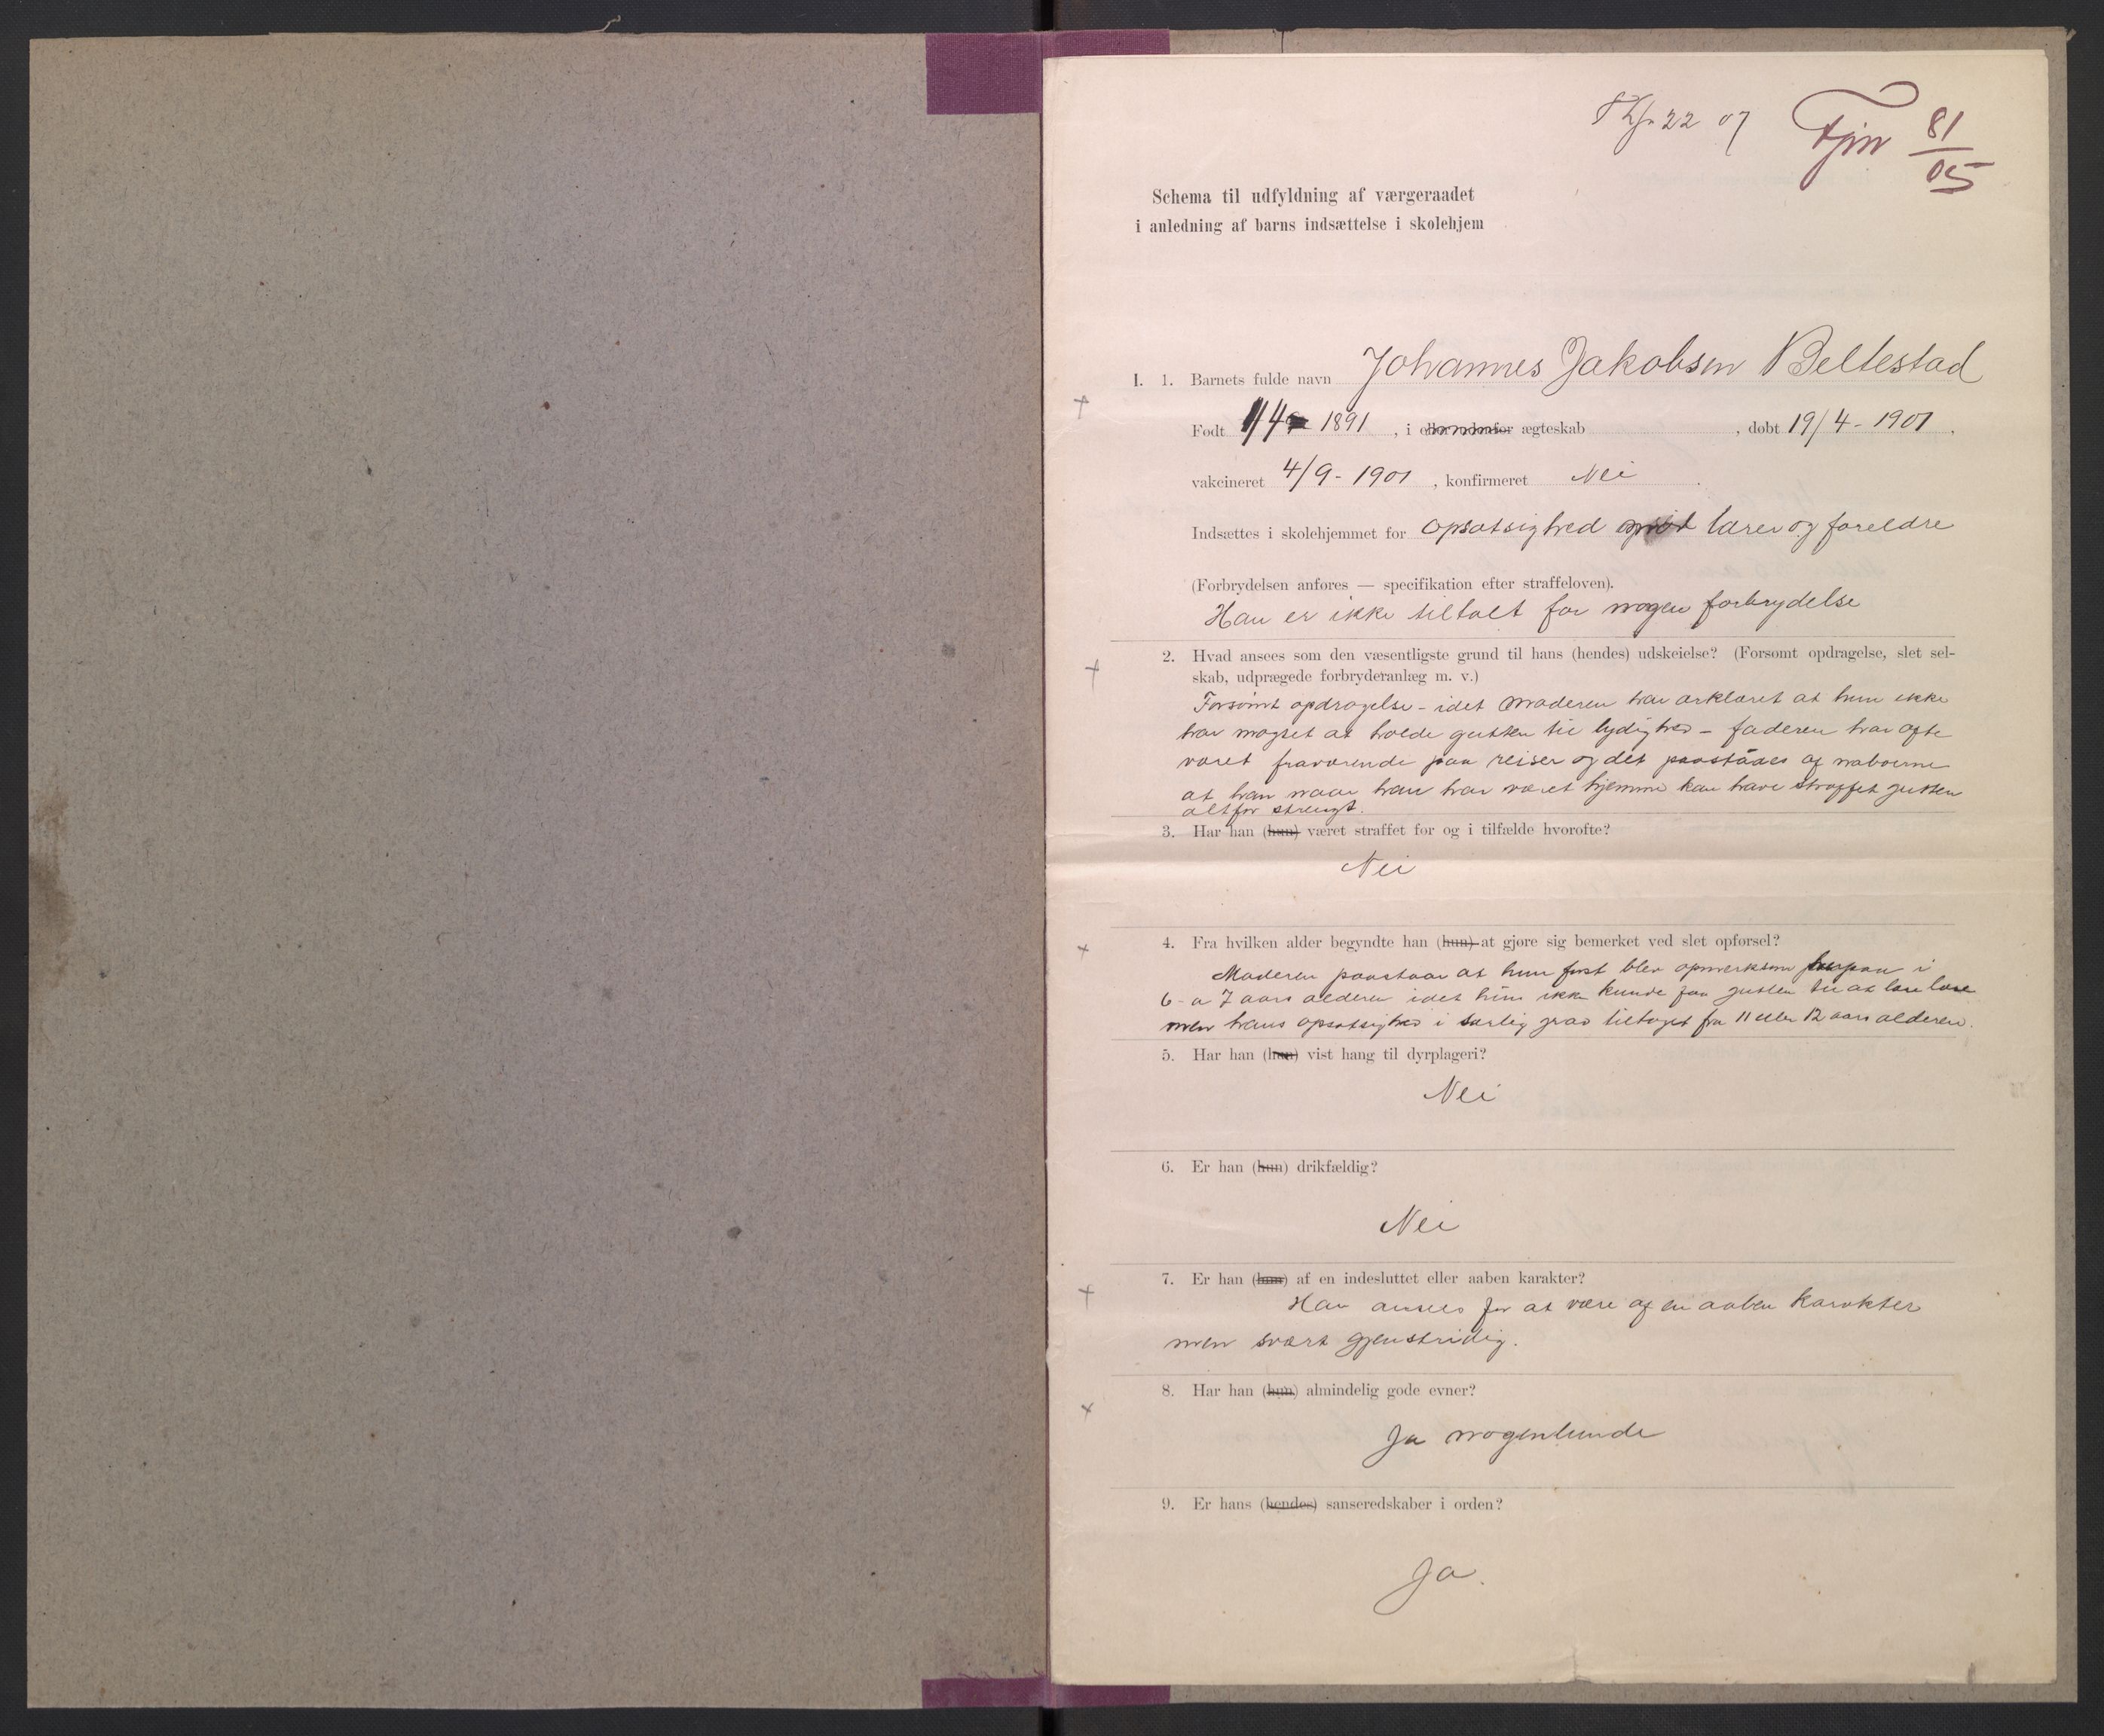 22 07 Fjn 81/05
Schema til udfyldning af værgeraadet
i anledning af barns indsættelse i skolehjem
I. 1. Barnets fulde navn Johannes Jakobsen Beltestad
Født 1/4 1891, i eller udenfor ægteskab, døbt 19/4 - 1901.
vakcineret 4/9 - 1901, konfirmeret Nei.
Indsættes i skolehjemmet for Opsatsighed mod lærer og foreldre
(Forbrydelsen anføres — specifikation efter straffeloven).
Han er ikke tiltalt for nogen forbrydelse
2. Hvad ansees som den væsentligste grund til hans (hendes) udskeielse? (Forsømt opdragelse, slet sel-
skab, udprægede forbryderanlæg m. v.)
Forsømt opdragelse - idet moderen har erklæret at hun ikke
har magtet at holde gutten til lydighed - faderen har ofte
været fraværende paa reiser og det paastaaes af naboerne
at han naar han har været hjemme kan have straffet gutten
altfor strengt.
3. Har han (hun) været straffet for og i tilfælde hvorofte?
Nei
4. Fra hvilken alder begyndte han (hun) at gjøre sig bemerket ved slet opførsel?
Moderen paastaar at hun først blev opmerksom herpaa i
6 - a 7 aars alderen idet hun ikke kunde faa gutten til at lære læse
men hans opsatsighed i særlig grad tiltaget fra 11 eller 12 aars alderen.
5. Har han (hun) vist hang til dyrplageri?
Nei
6. Er han (hun) drikfældig?
Nei
7. Er han (hun) af en indesluttet eller aaben karakter?
Han ansees for at være af en aaben karakter
men svært gjenstridig.
8. Har han (hun) almindelig gode evner?
Ja nogenlunde
9. Er hans (hendes) sanseredskaber i orden?
Ja.